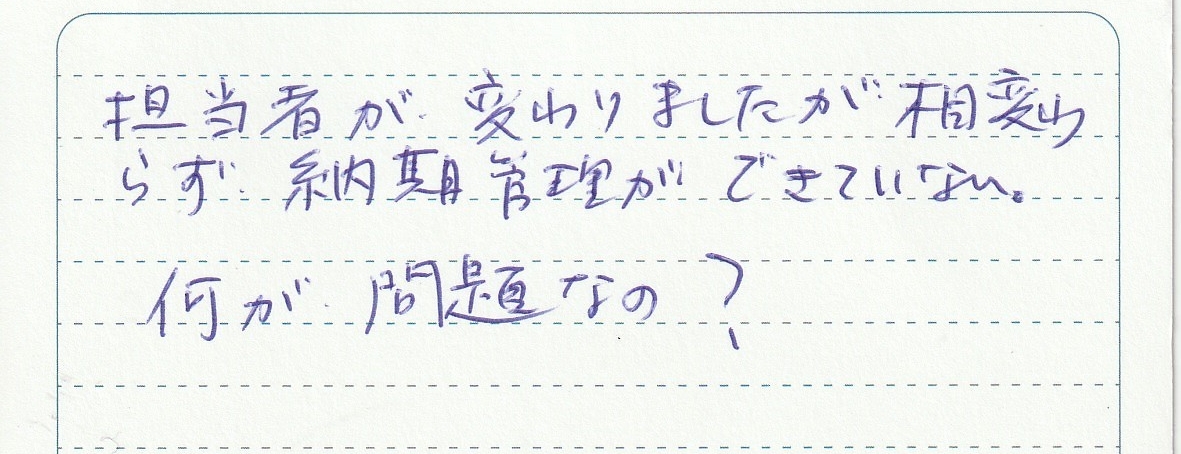 担当者が変わりましたが相変わ
らず納期管理ができていない。
何が問題なの?